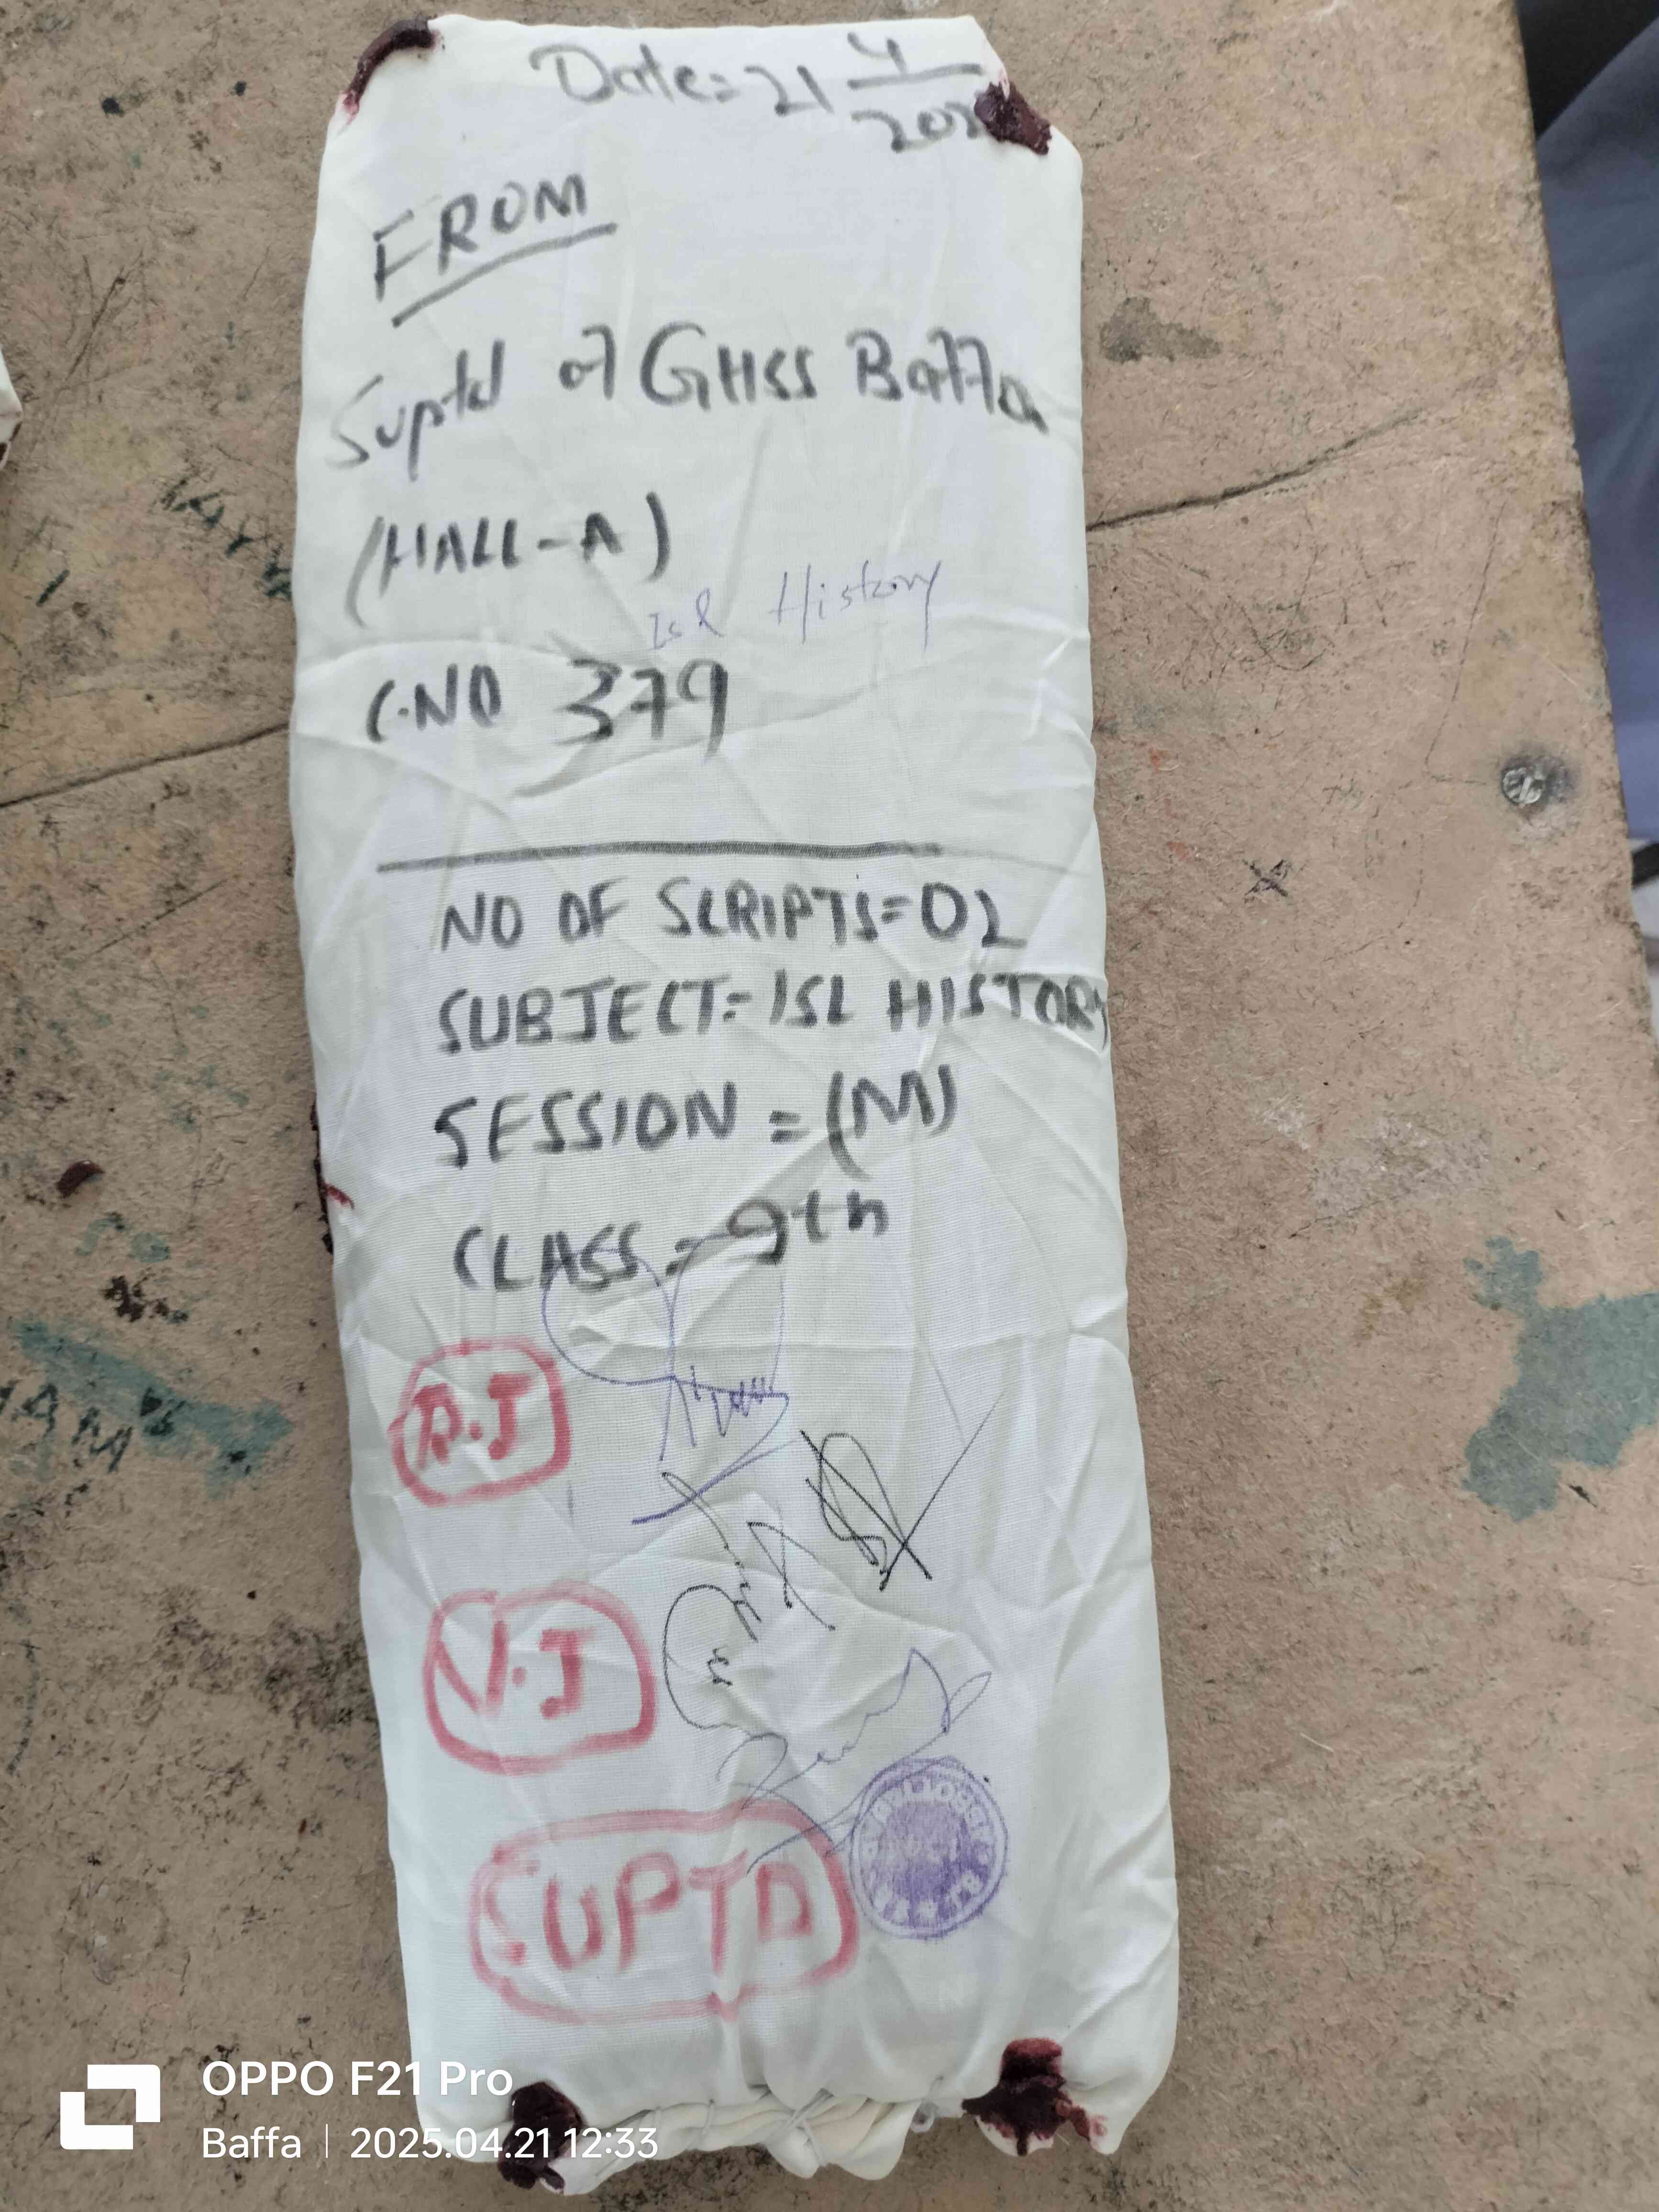 Date= 21 4
202
FROM
Suptd of GHSS Baffa
(HALL-A)
Isl History
C.NO 379
NO OF SCRIPTS=02
SUBJECT= ISL HISTORY
SESSION = (M)
CLASS = 9th
R.I
V.I
SUPTD
OPPO F21 Pro
Baffa | 2025.04.21 12:33